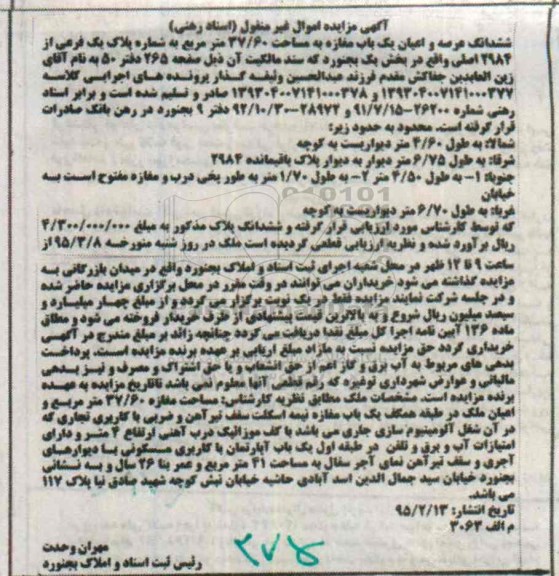 آگهی مزایده اموال غیر منقول (اسناد رهنی)
ششدانگ عرصه و اعیان یک باب مغازه به مساحت ۳۷/۶۰ متر مربع به شماره پلاک یک فرعی از
۲۹۸۴ اصلی واقع در بخش یک بجنورد که سند مالکیت آن ذیل صفحه ۲۶۵ دفتر ۵۰ به نام آقای
زین العابدین جفاکش مقدم فرزند عبدالحسین وثیقه گذار پرونده های اجرایی کلاسه
۱۳۹۳۰۴۰۰۷۱۴۱۰۰۰۳۷۷ و ۱۳۹۳۰۴۰۰۷۱۴۱۰۰۰۳۷۸ صادر و تسلیم شده است و برابر اسناد
رهنی شماره ۲۶۲۰۰-۹۱/۷/۱۵ و ۲۸۹۷۲-۹۲/۱۰/۳۰ دفتر ۹ بجنورد در رهن بانک صادرات
قرار گرفته است. محدود به حدود زیر:
شمالا: به طول ۴/۶۰ متر دیواریست به کوچه
شرقا: به طول ۶/۷۵ متر دیوار به دیوار پلاک باقیمانده ۲۹۸۴
جنوبا: ۱- به طول ۴/۵۰ متر ۲- به طول ۱/۷۰ متر به طور پخی درب و مغازه مفتوح است به
خیابان
غربا: به طول ۶/۷۰ متر دیواریست به کوچه
که توسط کارشناس مورد ارزیابی قرار گرفته و ششدانگ پلاک مذکور به مبلغ ۴/۳۰۰/۰۰۰/۰۰۰
ریال برآورد شده و نظریه ارزیابی قطعی گردیده است ملک در روز شنبه مورخه ۹۵/۳/۸ از
ساعت ۹ تا ۱۲ ظهر در محل شعبه اجرای ثبت اسناد و املاک بجنورد واقع در میدان بازرگانی به
مزایده گذاشته می شود خریداران می توانند در وقت مقرر در محل برگزاری مزایده حاضر شده
و در جلسه شرکت نمایند مزایده فقط در یک نوبت برگزار می گردد و از مبلغ چهار میلیارد و
سیصد میلیون ریال شروع و به بالاترین قیمت پیشنهادی از طرف خریدار فروخته می شود و مطابق
ماده ۱۳۶ آیین نامه اجرا کل مبلغ نقدا دریافت می گردد چنانچه زائد بر مبلغ مندرج در آگهی
خریداری گردد حق مزایده نسبت به مازاد مبلغ ارزیابی بر عهده برنده مزایده است. پرداخت
بدهی های مربوط به آب برق و گاز اعم از حق انشعاب و یا حق اشتراک و مصرف و نیز بدهی
مالیاتی و عوارض شهرداری توغیره که رقم قطعی آنها معلوم نمی باشد تاتاریخ مزایده به عهده
برنده مزایده است. مشخصات ملک مطابق نظریه کارشناس: مساحت مغازه ۳۷/۶۰ متر مربع و
اعیان ملک در طبقه همکف یک باب مغازه نیمه اسکلت سقف تیرآهن و ضربی با کاربری تجاری که
در آن شغل آلومینیوم سازی جاری می باشد با کف موزائیک درب آهنی ارتفاع ۴ متر و دارای
امتیازات آب و برق و تلفن در طبقه اول یک باب آپارتمان با کاربری مسکونی با دیوارهای
آجری و سقف تیرآهن نمای آجر سفال به مساحت ۴۱ متر مربع و عمر بنا ۲۶ سال و به نشانی
بجنورد خیابان سید جمال الدین اسد آبادی حاشیه خیابان نبش کوچه شهید صادق نیا پلاک ۱۱۷
می باشد.
تاریخ انتشار: ۹۵/۲/۱۳
م الف ۳۰۶۳
مهران وحدت
رئیس ثبت اسناد و املاک بجنورد